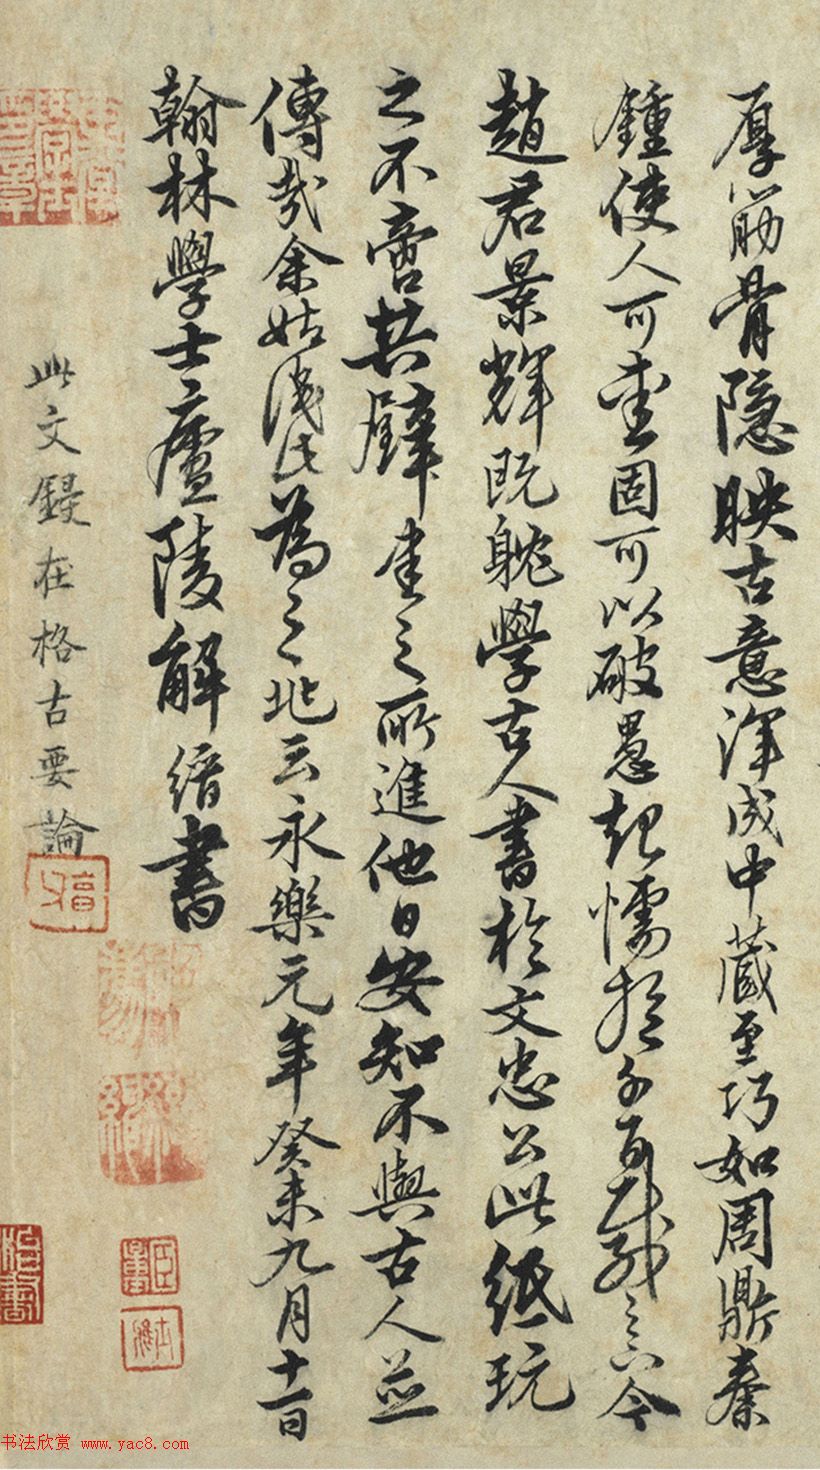 厚筋骨隱映古意渾成中蔵至巧如周鼎秦
鍾使人可愛固可以破愚起懦於千百載之下今
趙君景輝既躭學古人書於文忠公此紙玩
之不啻拱璧書之所進他日安知不與古人並
傳哉余姑識此為之兆云永樂元年癸未九月十一日
翰林學士廬陵解縉書
此文録在格古要論
书法欣赏 www.yac8.com